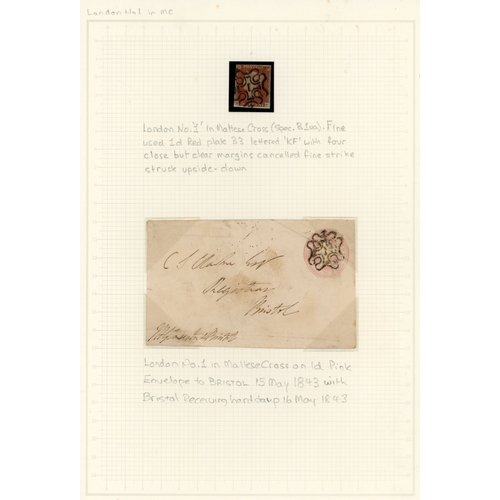 London No1 in MC
London No.'1' in Maltese Cross (Spec. B1oa). Fine
used 1d Red plate 33 lettered 'KF' with four
close but clear margins cancelled fine strike
struck upside-down
Esqr
Bristol
London No.1 in Maltese Cross on 1d Pink
Envelope to BRISTOL 15 May 1843 with
Bristol Receiving handstamp 16 May 1843